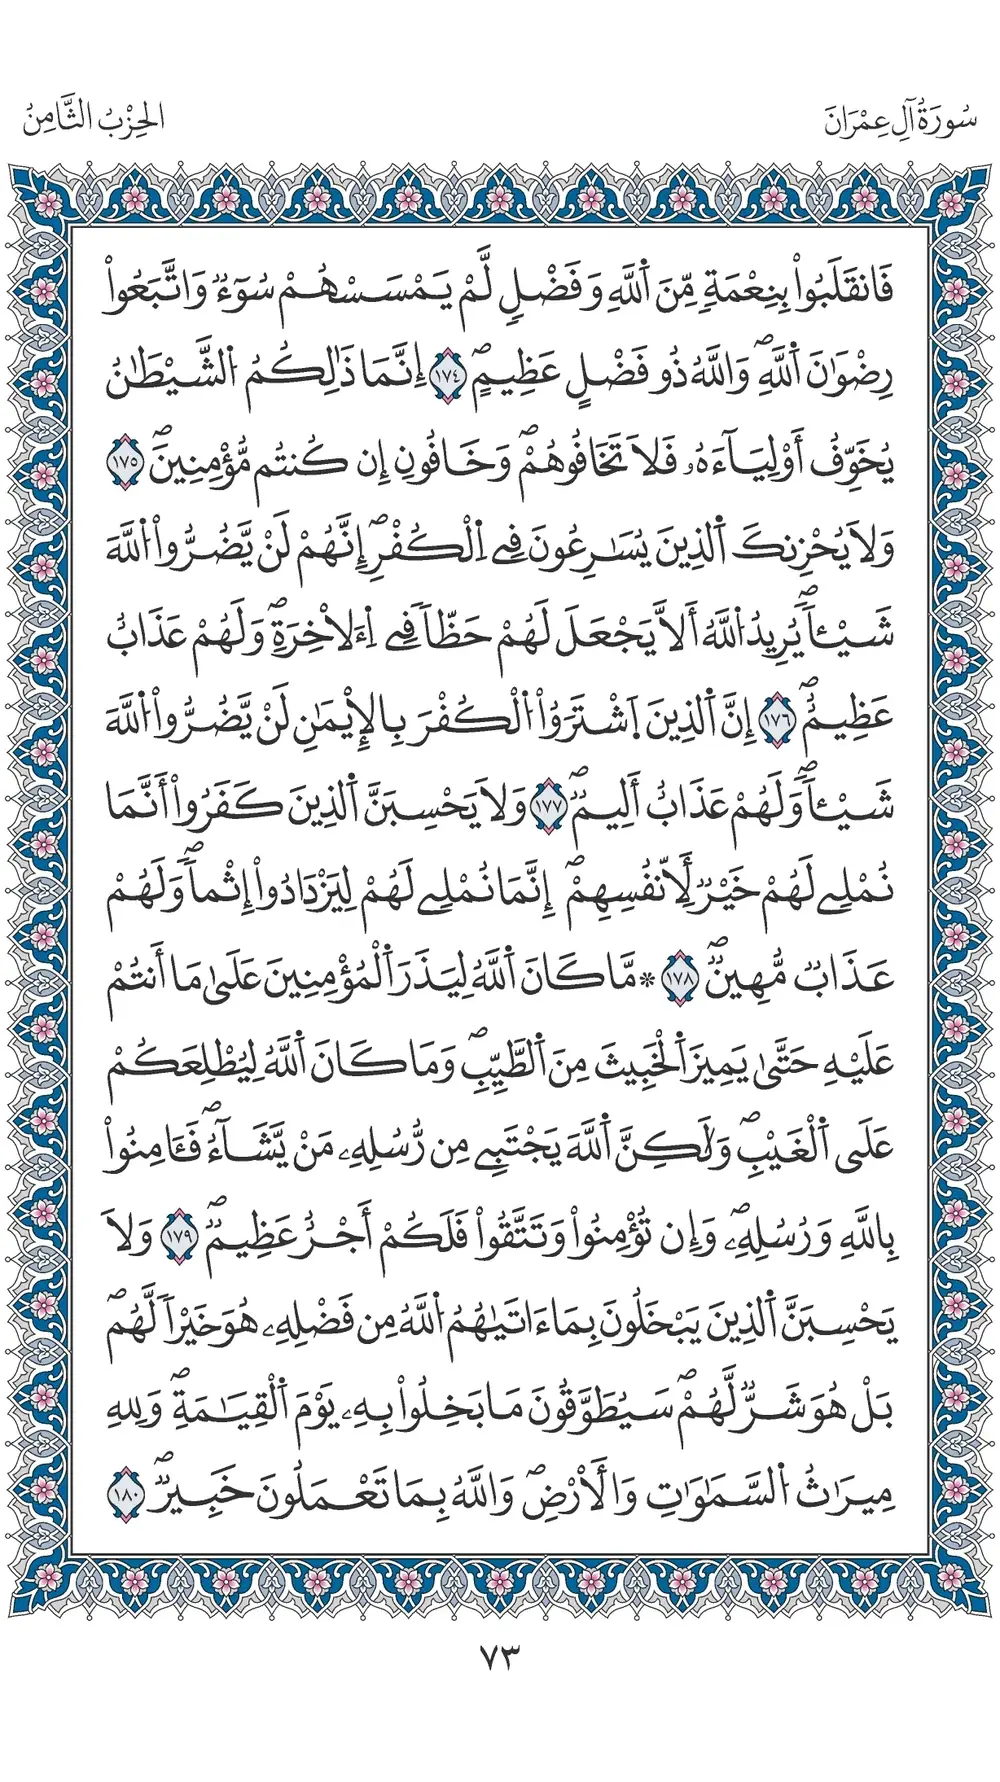 سُورَةُ آلِ عِمْرَانَ
الحِزْبُ الثَّامِنُ
فَانقَلَبُواْ بِنِعْمَةٖ مِّنَ اَ۬للَّهِ وَفَضْلٖ لَّمْ يَمْسَسْهُمْ سُوٓءٞ وَاتَّبَعُواْ
رِضْوَٰنَ اَ۬للَّهِۖ وَاللَّهُ ذُو فَضْلٍ عَظِيمٍۖ ١٧٤ إِنَّمَا ذَٰلِكُمُ اُ۬لشَّيْطَٰنُ
يُخَوِّفُ أَوْلِيَآءَهُۥ فَلَا تَخَافُوهُمْۖ وَخَافُونِ إِن كُنتُم مُّؤْمِنِينَۖ ١٧٥
وَلَا يُحْزِنكَ اَ۬لذِينَ يُسَٰرِعُونَ فِے اِ۬لْكُفْرِۖ إِنَّهُمْ لَنْ يَّضُرُّواْ اُ۬للَّهَ
شَيْـٔاٗۖ يُرِيدُ اُ۬للَّهُ أَلَّا يَجْعَلَ لَهُمْ حَظّاٗ فِے اِ۬لَاخِرَةِۖ وَلَهُمْ عَذَابٌ
عَظِيمٌۖ ١٧٦ إِنَّ اَ۬لذِينَ اَ۪شْتَرَوُاْ اُ۬لْكُفْرَ بِالِايمَٰنِ لَنْ يَّضُرُّواْ اُ۬للَّهَ
شَيْـٔاٗۖ وَلَهُمْ عَذَابٌ أَلِيمٞۖ ١٧٧ وَلَا يَحْسِبَنَّ اَ۬لذِينَ كَفَرُواْ أَنَّمَا
نُمْلِے لَهُمْ خَيْرٞ لِّأَنفُسِهِمْۖ إِنَّمَا نُمْلِے لَهُمْ لِيَزْدَادُواْ إِثْماٗۖ وَلَهُمْ
عَذَابٞ مُّهِينٞۖ ١٧٨ ۞ مَّا كَانَ اَ۬للَّهُ لِيَذَرَ اَ۬لْمُؤْمِنِينَ عَلَىٰ مَا أَنتُمْ
عَلَيْهِ حَتَّىٰ يَمِيزَ اَ۬لْخَبِيثَ مِنَ اَ۬لطَّيِّبِۖ وَمَا كَانَ اَ۬للَّهُ لِيُطْلِعَكُمْ
عَلَى اَ۬لْغَيْبِۖ وَلَٰكِنَّ اَ۬للَّهَ يَجْتَبِے مِن رُّسُلِهِۦ مَنْ يَّشَآءُۖ فَـَٔامِنُواْ
بِاللَّهِ وَرُسُلِهِۦۖ وَإِن تُؤْمِنُواْ وَتَتَّقُواْ فَلَكُمْ أَجْرٌ عَظِيمٞۖ ١٧٩ وَلَا
يَحْسِبَنَّ اَ۬لذِينَ يَبْخَلُونَ بِمَا ءَاتَيٰهُمُ اُ۬للَّهُ مِن فَضْلِهِۦ هُوَ خَيْراٗ لَّهُمۖ
بَلْ هُوَ شَرّٞ لَّهُمْۖ سَيُطَوَّقُونَ مَا بَخِلُواْ بِهِۦ يَوْمَ اَ۬لْقِيَٰمَةِۖ وَلِلهِ
مِيرَٰثُ اُ۬لسَّمَٰوَٰتِ وَالْأَرْضِۖ وَاللَّهُ بِمَا تَعْمَلُونَ خَبِيرٞۖ ١٨٠
٧٣